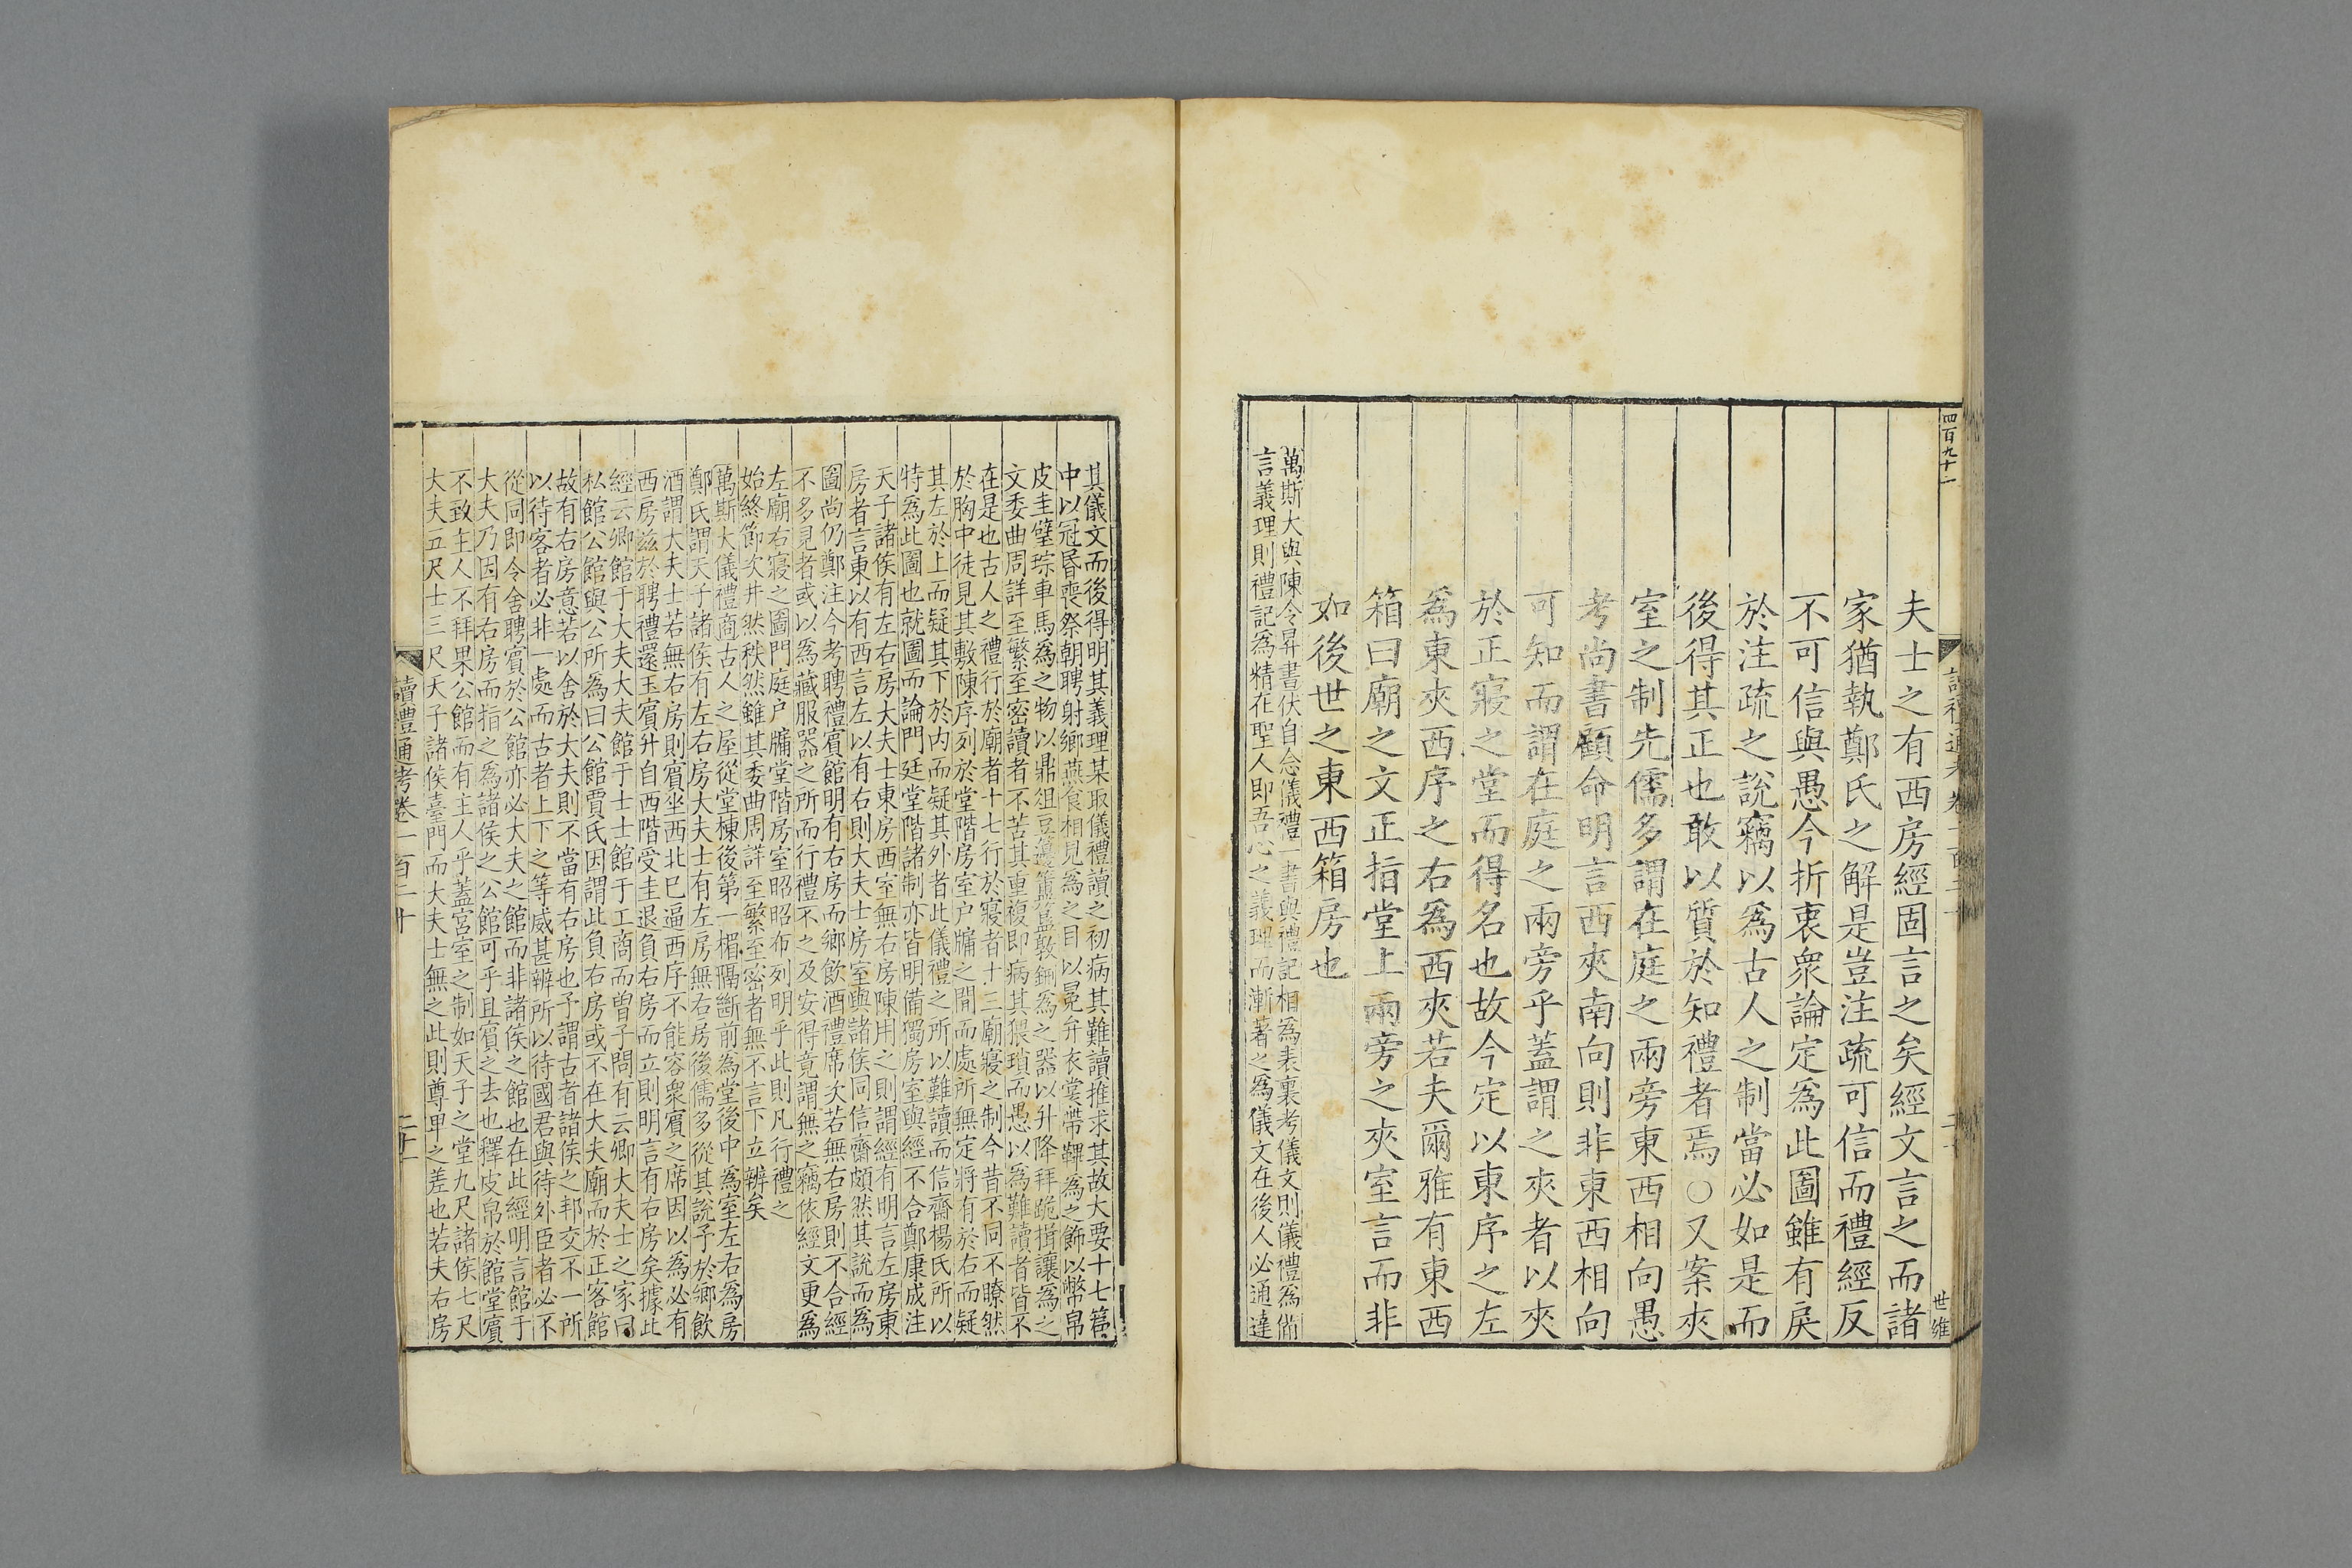 四百九十二
世維
夫士之有西房經固言之矣經文言之而諸
家猶執鄭氏之解是豈注疏可信而禮經反
不可信與愚今折衷衆論定爲此圖雖有戾
於注疏之說竊以爲古人之制當必如是而
後得其正也敢以質於知禮者焉○又案夾
室之制先儒多謂在庭之兩旁東西相向愚
考尚書顧命明言西夾南向則非東西相向
可知而謂在庭之兩旁乎蓋謂之夾者以夾
於正寢之堂而得名也故今定以東序之左
爲東夾西序之右爲西夾若夫爾雅有東西
箱曰廟之文正指堂上兩旁之夾室言而非
如後世之東西箱房也
萬斯大與陳令昇書伏自念儀禮一書與禮記相爲表裏考儀文則儀禮爲備
言義理則禮記爲精在聖人即吾心之義理而漸著之爲儀文在後人必通達
其儀文而後得明其義理某取儀禮讀之初病其難讀推求其故大要十七篇
中以冠昏喪祭朝聘射鄉燕食相見爲之目以冕弁衣裳帶韠爲之飾以幣帛
皮圭璧琮車馬爲之物以鼎俎豆籩簠簋敦鉶爲之器以升降拜跪揖讓爲之
文委曲周詳至繁至密讀者不苦其重複即病其猥瑣而愚以爲難讀者皆不
在是也古人之禮行於廟者十七行於寢者十三廟寢之制今昔不同不瞭然
於胸中徒見其敷陳序列於堂階房室户牖之間而處所無定將有於右而疑
其左於上而疑其下於内而疑其外者此儀禮之所以難讀而信齋楊氏所以
特爲此圖也就圖而論門廷堂階諸制亦皆明備獨房室與經不合鄭康成注
天子諸侯有左右房大夫士東房西室無右房陳用之則謂經有明言左房東
房者言東以有西言左以有右則大夫士房室與諸侯同信齋頗然其說而爲
圖尚仍鄭注今考聘禮賓館明有右房而鄉飲酒禮席次若無右房則不合經
不多見者或以爲藏服器之所而行禮不之及安得竟謂無之竊依經文更爲
左廟右寢之圖門庭户牖堂階房室昭昭布列明乎此則凡行禮之
始終節次井然秩然雖其委曲周詳至繁至密者無不言下立辨矣
萬斯大儀禮商古人之屋從堂棟後第一楣隔斷前為堂後中爲室左右爲房
鄭氏謂天子諸侯有左右房大夫士有左房無右房後儒多從其說予於鄉飲
酒謂大夫士若無右房則賓坐西北已逼西序不能容衆賓之席因以爲必有
西房兹於聘禮還玉賓升自西階受圭退負右房而立則明言有右房矣據此
經云卿館于大夫大夫館于士士館于工商而曾子問有云卿大夫士之家曰
私館公館與公所爲曰公館賈氏因謂此負右房或不在大夫廟而於正客館
故有右房意若以舍於大夫則不當有右房也予謂古者諸侯之邦交不一所
以待客者必非一處而古者上下之等威甚辨所以待國君與待外臣者必不
從同即令舍聘賓於公館亦必大夫之館而非諸侯之館也在此經明言館于
大夫乃因有右房而指之爲諸侯之公館可乎且賓之去也釋皮帛於館堂賓
不致主人不拜果公館而有主人乎蓋宮室之制如天子之堂九尺諸侯七尺
大夫五尺士三尺天子諸侯臺門而大夫士無之此則尊卑之差也若夫右房
讀禮通考卷一百二十
二十一